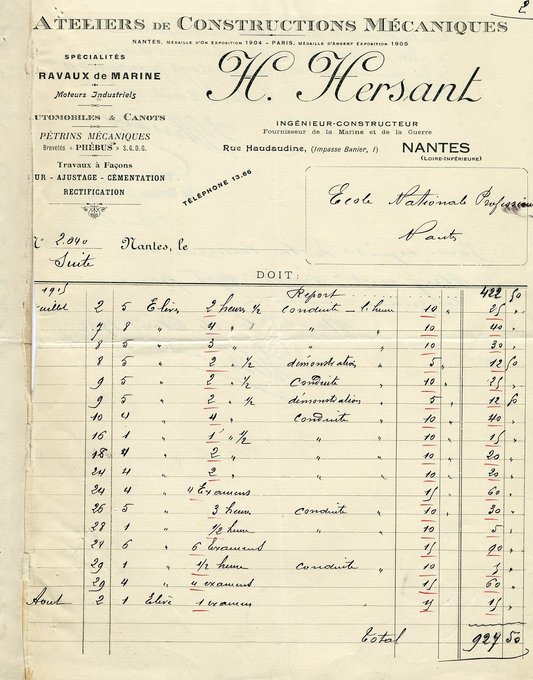 2
ATELIERS DE CONSTRUCTIONS MÉCANIQUES
NANTES, MÉDAILLE D'OR EXPOSITION 1904 - PARIS, MÉDAILLE D'ARGENT EXPOSITION 1905
SPÉCIALITÉS
RAVAUX DE MARINE
Moteurs Industriels
UTOMOBILES & CANOTS
PÉTRINS MÉCANIQUES
Brevetés « PHÉBUS » S.G.D.G.
Travaux à Façons
UR - AJUSTAGE - CÉMENTATION
RECTIFICATION
TÉLÉPHONE 13.66
H. Hersant
INGÉNIEUR-CONSTRUCTEUR
Fournisseur de la Marine et de la Guerre
Rue Haudaudine, (Impasse Banier, 1) NANTES
(LOIRE-INFÉRIEURE)
Ecole Nationale
Nantes
2.040 Nantes, le
Suite
DOIT:
1915 Report 422 50
uillet 2 5 Elèves 2 heures 1/2 conduite - l. heure 10 " 25 "
7 8 " 4 " " 10 40 "
8 5 " 3 " " 10 30 "
8 5 " 2 " 1/2 démonstration " 5 " 12 50
9 5 " 2 " 1/2 conduite " 10 " 25 "
9 5 " 2 " 1/2 démonstration " 5 " 12 50
10 4 " 4 " conduite " 10 " 40 "
16 1 " 1 " 1/2 " " 10 " 15 "
18 4 " 2 " " " 10 " 20 "
24 4 " 2 " " " 10 " 20 "
24 4 " 4 Examens 15 " 60 "
26 5 " 3 heures conduite " 10 " 30 "
28 1 " 1/2 heure " " 10 5 "
6 " 6 Examens 15 90 "
29 1 " 1/2 heure conduite " 10 5 "
29 4 " 4 examens 15 " 60 "
Aout 2 1 Elève 1 examen " 15 "
Total 927 50